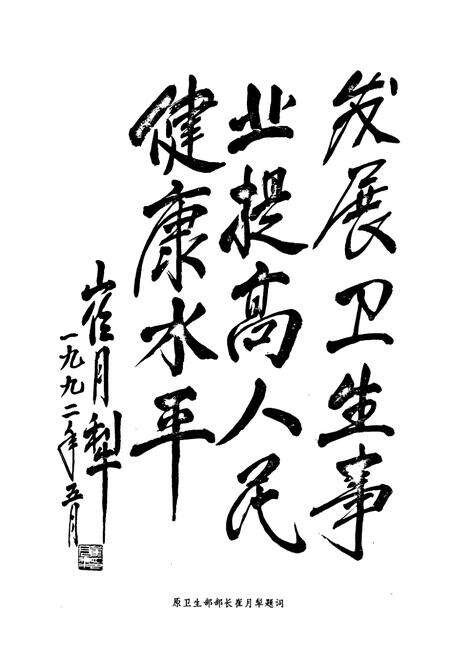 发展卫生事
业提高人民
健康水平
崔月犁
一九九二年五月
原卫生部部长崔月犁题词